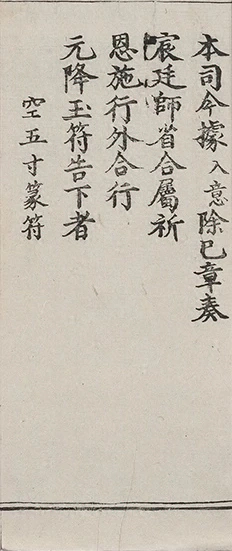 本司今據入意除已章奏
宸廷師省合屬祈
恩施行外合行
元降玉符告下者
空五寸篆符